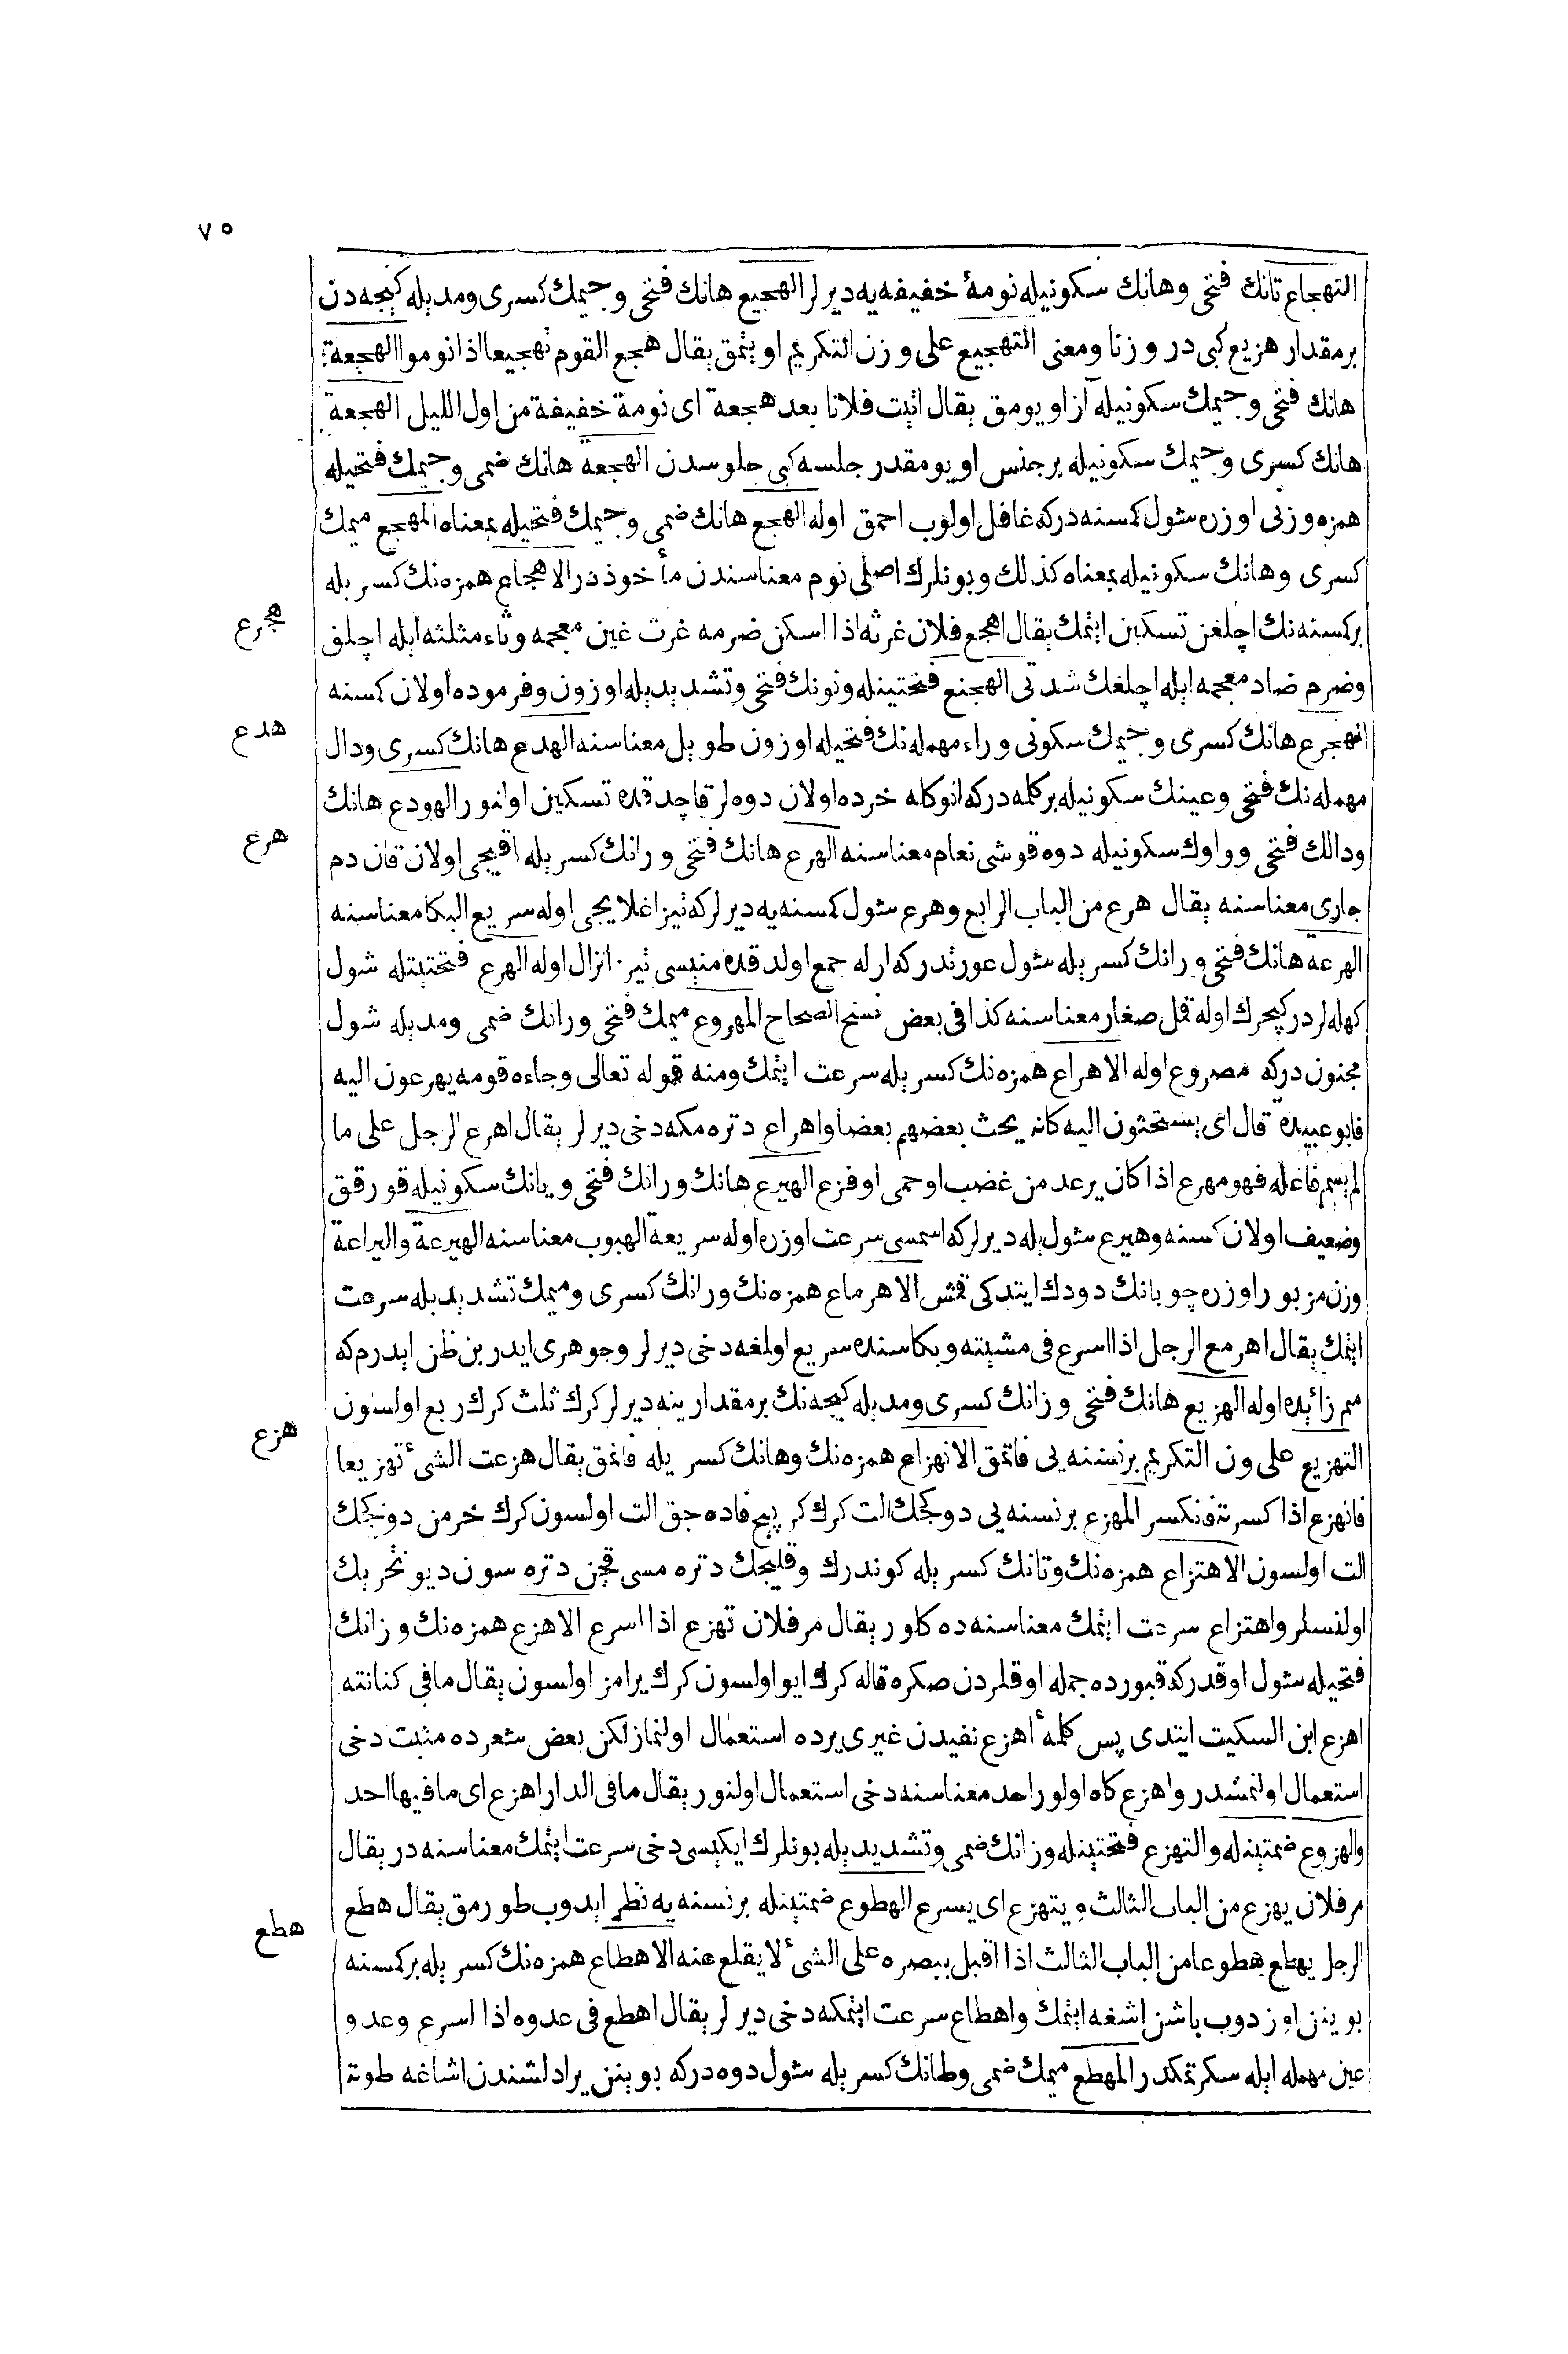 ٧٥
التهجاع تانك فتحى وهانك سكونيله نومۀ خفيفه يه ديرلر الهجيع هانك فتحى وجيمك كسرى ومد بله كيجه دن
بر مقدار هزيع كبى در وزنا ومعنى التهجيع على وزن التكريم اويتمق يقال هجع القوم تهجيعا اذا نوموا الهجعة
هانك فتحى وجيمك سكونيله آز اويومق يقال اتيت فلانا بعد هجعة اى نومة خفيفة من اول الليل الهجعة
هانك كسرى وجيمك سكونيله بر جنس اويومقدر جلسه كبى جلوسدن الهجعة هانك ضمى وجيمك فتحيله
همزه وزنى اوزره شول كمسنه دركه غافل اولوب احمق اوله الهجع هانك ضمى وجيمك فتحيله بمعناه المهجع ميمك
كسرى وهانك سكونيله بمعناه كذلك وبونلرك اصلى نوم معناسندن مأخوذدر الاهجاع همزه نك كسر بله
بر كمسنه نك اچلغن تسكين ايتمك يقال اهجع فلان غرثه اذا اسكن ضرمه غرث غين معجمه وثاء مثلثه ايله اچلق
هجرع
وضرم ضاد معجمه ايله اچلغك شدتى الهجنع فتحتينله ونونك فتحى وتشديد بله اوزون وفرموده اولان كمسنه
الهجرع هانك كسرى وجيمك سكونى وراء مهمله نك فتحيله اوزون طويل معناسنه الهدع هانك كسرى ودال
هدع
مهمله نك فتحى وعينك سكونيله بر كلمه دركه انوكله خرده اولان دوه لر قاچدقده تسكين اولنور الهودع هانك
ودالك فتحى وواوك سكونيله دوه قوشى نعام معناسنه الهرع هانك فتحى ورانك كسر بله اقيجى اولان قان دم
هرع
جارى معناسنه يقال هرع من الباب الرابع وهرع شول كمسنه يه ديرلركه تيز اغلايجى اوله سريع البكا معناسنه
الهرعة هانك فتحى ورانك كسر بله شول عورتدركه ارله جمع اولدقده منيسى تيز انزال اوله الهرع فتحتينله شول
كهله لر در كيجرك اوله قمل صغار معناسنه كذا فى بعض نسخ الصحاح المهروع ميمك فتحى ورانك ضمى ومد بله شول
مجنون دركه مصروع اوله الاهراع همزه نك كسر بله سرعت ايتمك ومنه قوله تعالى وجاءه قومه يهرعون اليه
فابو عبيده قال اى يستحثون اليه كانه يحث بعضهم بعضا واهراع دتره مكه دخى ديرلر يقال اهرع الرجل على ما
لم يسم فاعله فهو مهرع اذا كان يرعد من غضب او حمى او فزع الهيرع هانك ورانك فتحى ويانك سكونيله قورقق
وضعيف اولان كمسنه وهيرع شول يله ديرلركه اسمسى سرعت اوزره اوله سريعة الهبوب معناسنه الهيرعة واليراعة
وزن مزبور اوزره چوبانك دودك ايتدكى قمش الاهرماع همزه نك ورانك كسرى وميمك تشديد بله سرعت
ايتمك يقال اهرمع الرجل اذا اسرع فى مشيته وبكاسنده سريع اولمغه دخى ديرلر وجوهرى ايدر بن ظن ايدرم كه
ميم زائده اوله الهزيع هانك فتحى وزانك كسرى ومد بله كيجه نك بر مقدارينه ديرلر كرك ثلث كرك ربع اولسون
التهزيع على ون التكريم بر نسنه يى قاتمق الانهزاع همزه نك وهانك كسر يله قاتمق يقال هزعت الشئ تهزيعا
هزع
فانهزع اذا كسرته فنكسر المهزع بر نسنه يى دوكجك الت كرك كر پيج قاده جق الت اولسون كرك خرمن دوكجك
الت اولسون الاهتزاع همزه نك وتانك كسر بله كوندرك وقليجك دتره مسى قچن دتره سون ديو تحريك
اولنسلر واهتزاع سرعت ايتمك معناسنه ده كلور يقال مر فلان تهزع اذا اسرع الاهزع همزه نك وزانك
فتحيله شول اوقدركه قبورده جمله اوقلردن صكره قاله كرك ايو اولسون كرك يرامز اولسون يقال ما فى كنانته
اهزع ابن السكيت ايتدى پس كلمۀ اهزع نفيدن غيرى يرده استعمال اولنماز لكن بعض شعرده مثبت دخى
استعمال اولنمشدر واهزع كاه اولور احد معناسنه دخى استعمال اولنور يقال ما فى الدار اهزع اى ما فيها احد
والهزوع ضمتينله والتهزع فتحتينله وزانك ضمى وتشديد بله بونلرك ايكيسى دخى سرعت ايتمك معناسنه در يقال
مر فلان يهزع من الباب الثالث ويتهزع اى يسرع الهطوع ضمتينله بر نسنه يه نظر ايدوب طورمق يقال هطع
هطع
الرجل يهطع هطوعا من الباب الثالث اذا اقبل ببصره على الشئ لا يقلع عنه الاهطاع همزه نك كسر بله بر كمسنه
بوينن اوزدوب باشن اشغه ايتمك واهطاع سرعت ايتمكه دخى ديرلر يقال اهطع فى عدوه اذا اسرع وعدو
عين مهمله ايله سكرتمكدر المهطع ميمك ضمى وطانك كسر بله شول دوه دركه بوينن يرادلشندن اشاغه طوته